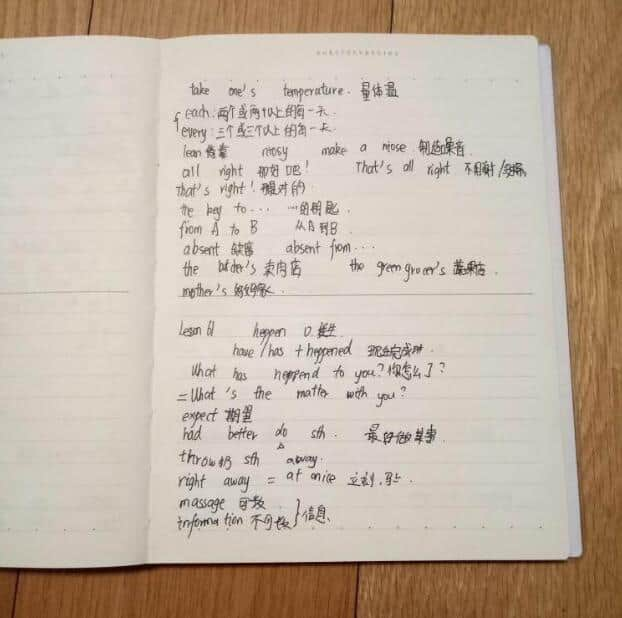 take one's temperature. 量体温
each: 两个或两个以上的每一天.
every: 三个或三个以上的每一天.
lean 倚靠 noisy make a niose 制造噪音
all right 好吧! That's all right 不用谢/
That's right! 很对的
the key to... ...的钥匙.
from A to B 从A到B
absent 缺席 absent from...
the 卖肉店 the greengrocer's 蔬果店
mother's
Lesson 61 heppen v.发生
have/has + heppened 现在完成时.
What has heppend to you? 你怎么了?
= What's the matter with you?
expect 期望
had better do sth. 最好做某事
throw 扔 sth away.
right away = at once 立刻,马上
massage 可数
information 不可数 }信息